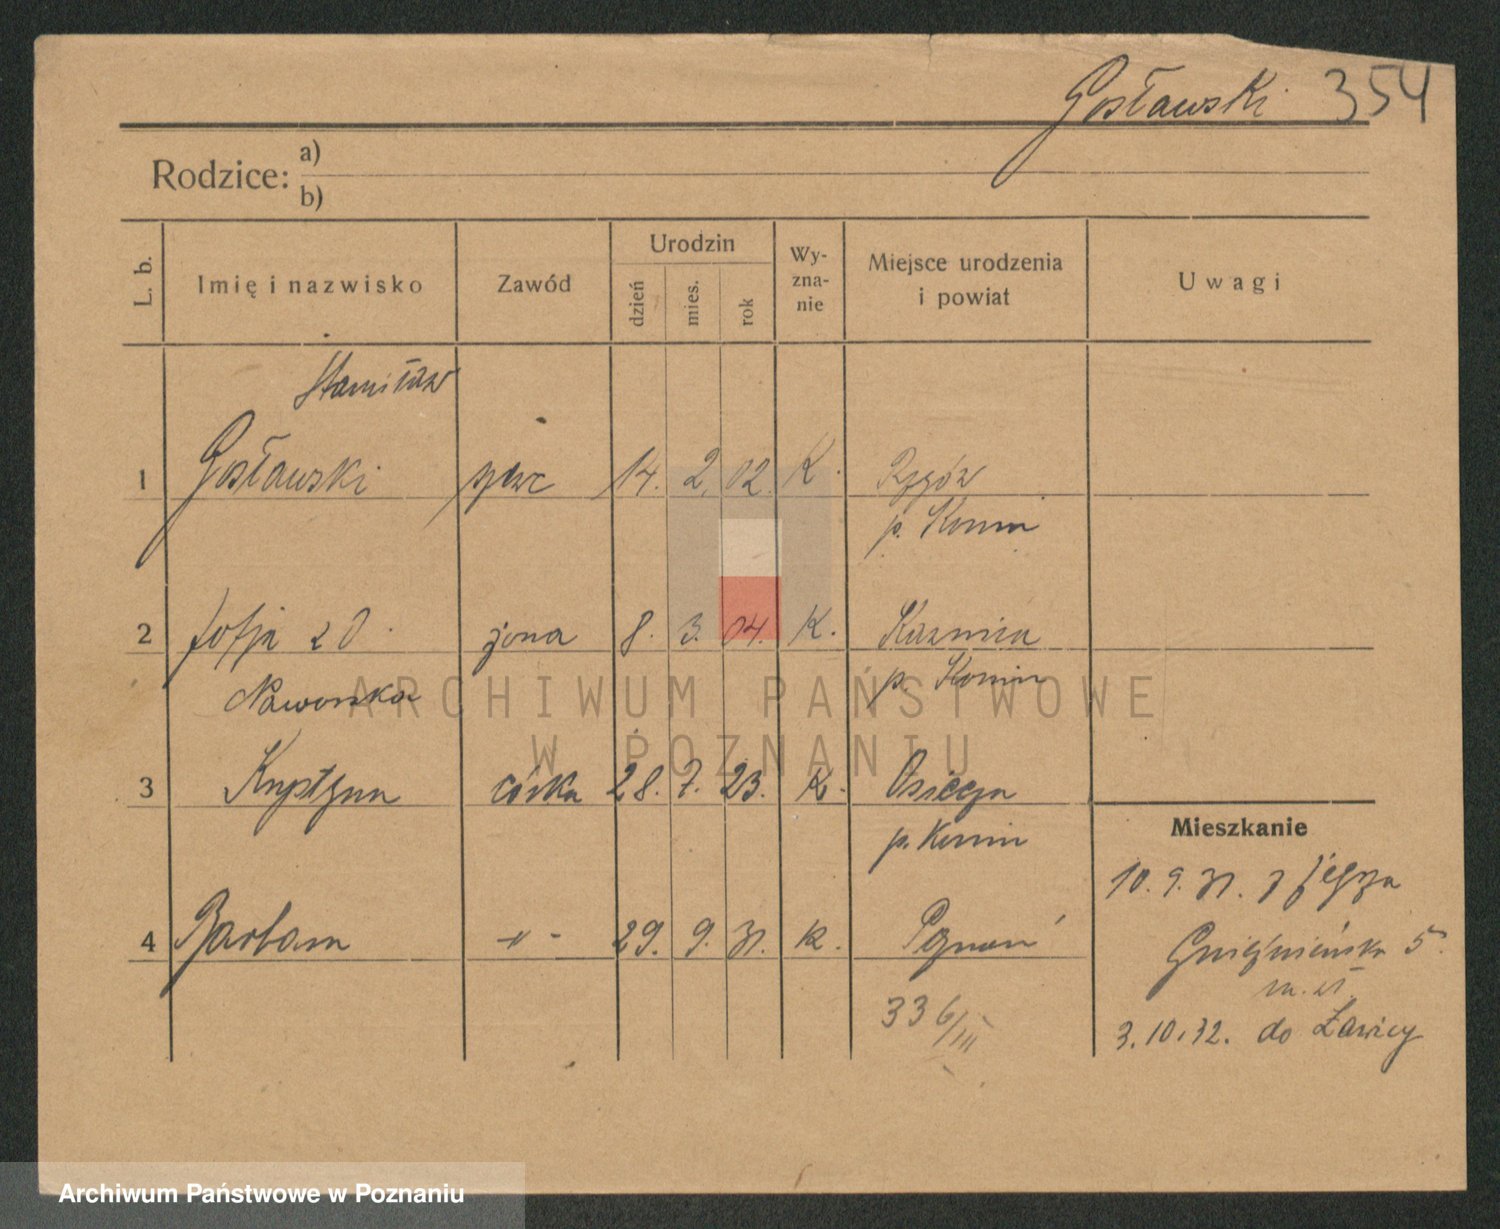 Gosławski 354
Rodzice: a)
b)
L. b.
Imię i nazwisko
Zawód
Urodzin
dzień
mies.
rok
Wy-
zna-
nie
Miejsce urodzenia
i powiat
Uwagi
Stanisław
1 Gosławski 14. 2. 02. K. Rzgów
p. Konin
2 Zofja z D. żona 8. 3. 04. K. Kaźnica
p. Konin
3 Krystyna córka 28. 7. 23. K. Osiecza
p. Konin
Mieszkanie
10. 9. 31. z
4 Barbara -"- 29. 9. 31. K. Poznań
Gnieźnieńska 5
336/III
3.10.32. do Ławicy
ARCHIWUM PAŃSTWOWE
W POZNANIU
Archiwum Państwowe w Poznaniu